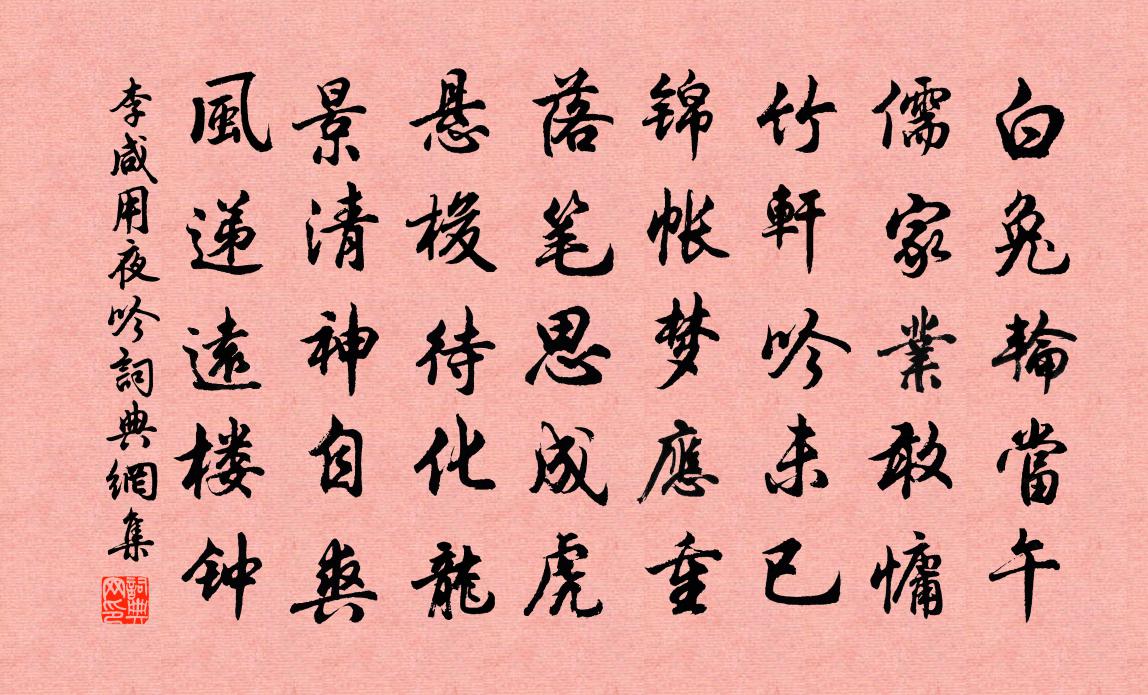 白兔輪當午
儒家業敢慵
竹軒吟未已
锦帐梦應重
落笔思成虎
悬梭待化龍
景清神自爽
風递遠楼钟
李咸用夜吟詞典網集
詞典网印